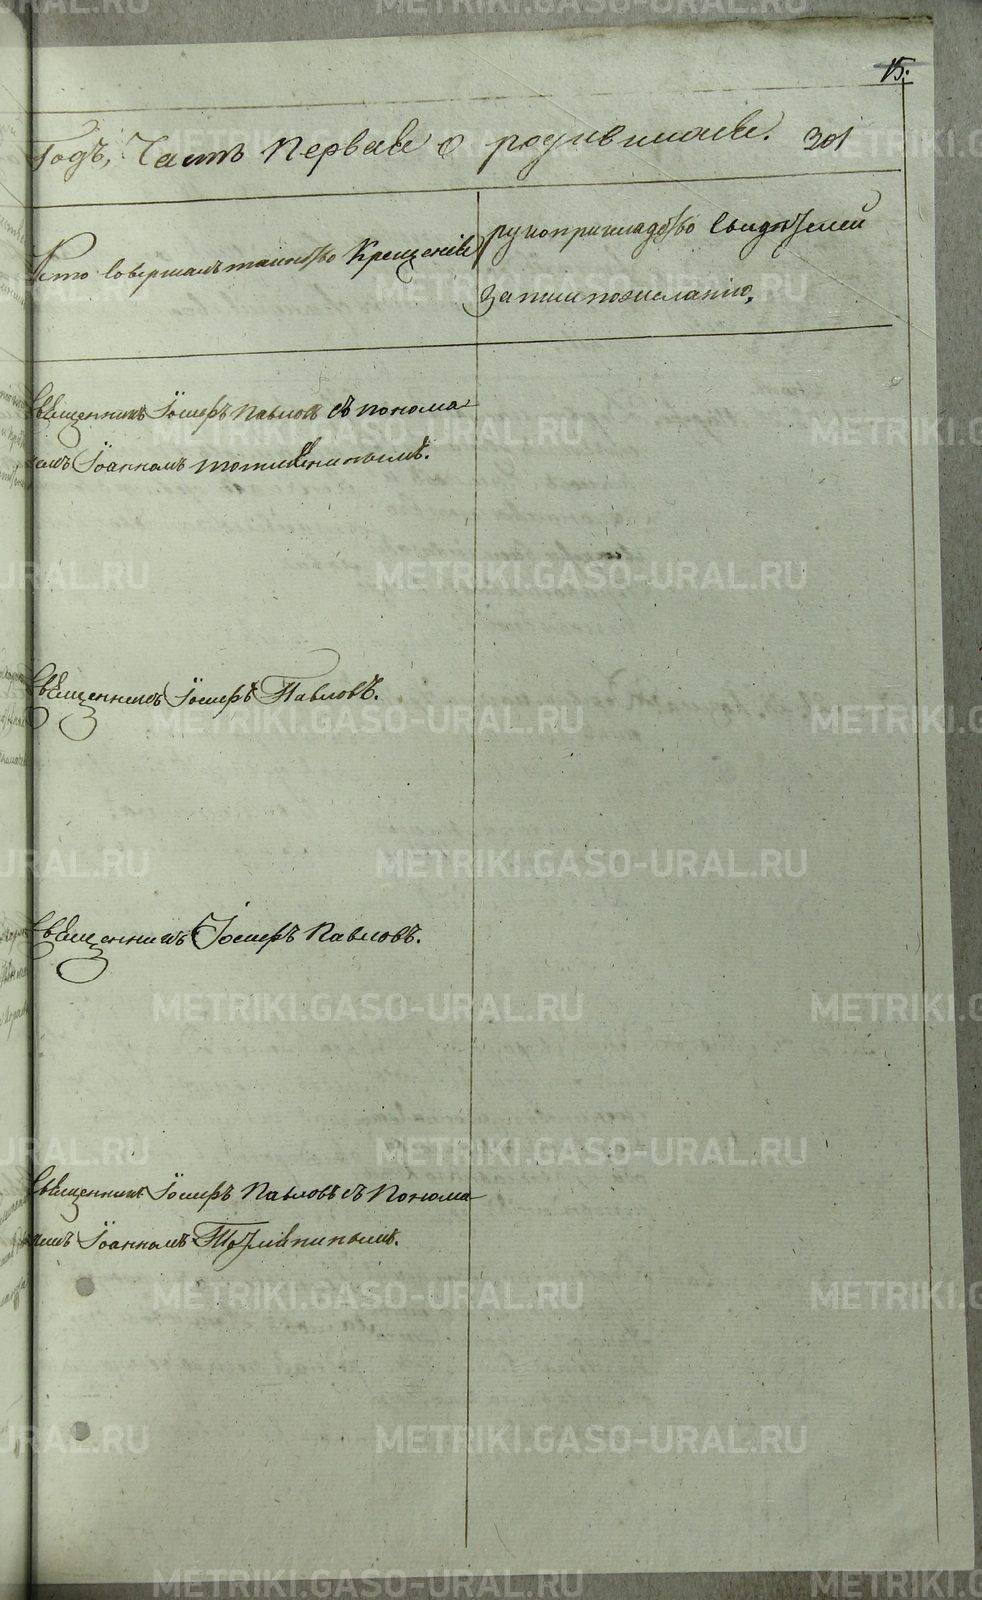 15.
Годъ, Часть Первая о родившихся. 301
Кто Совершалъ таинство Крещенія
рукоприкладство Свидѣтелей
записи по желанію.
Священникъ Іосифъ Павловъ съ понома
ремъ Іоанномъ
Священникъ Іосифъ Павловъ.
Священникъ Іосифъ Павловъ.
Священникъ Іосифъ Павловъ съ Понома
ремъ Іоанномъ
METRIKI.GASO-URAL.RU